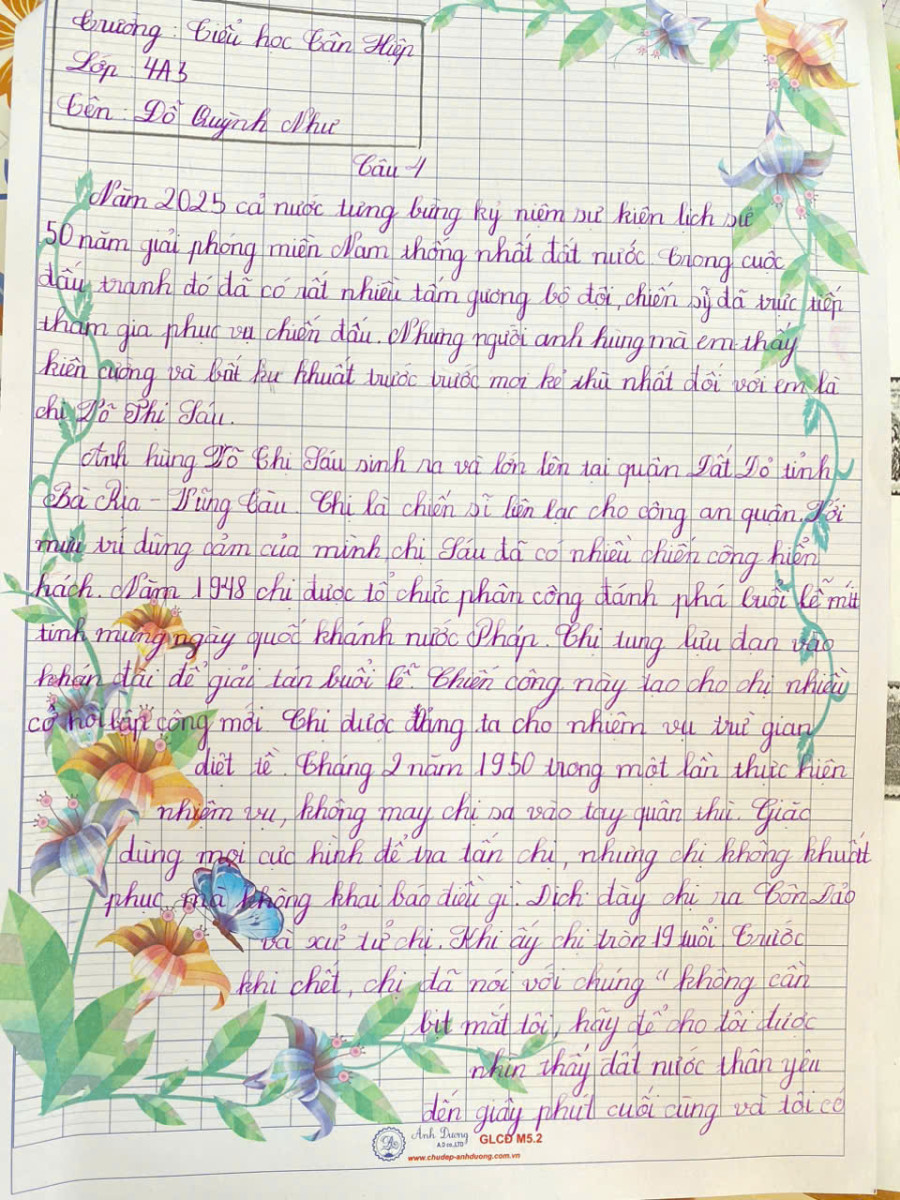 Trường : Tiểu học Tân Hiệp
Lớp : 4A3
Tên : Đỗ Quỳnh Như
Câu 1
Năm 2025 cả nước tưng bừng kỷ niệm sự kiện lịch sử
50 năm giải phóng miền Nam thống nhất đất nước. Trong cuộc
đấu tranh đó đã có rất nhiều tấm gương bộ đội, chiến sỹ đã trực tiếp
tham gia phục vụ chiến đấu. Nhưng người anh hùng mà em thấy
kiên cường và bất khuất trước trước mọi kẻ thù nhất đối với em là
chị Võ Thị Sáu.
Anh hùng Võ Thị Sáu sinh ra và lớn lên tại quận Đất Đỏ tỉnh
Bà Rịa - Vũng Tàu. Chị là chiến sĩ liên lạc cho công an quận. Với
mưu trí dũng cảm của mình chị Sáu đã có nhiều chiến công hiển
hách. Năm 1948 chị được tổ chức phân công đánh phá buổi lễ mít
tinh mừng ngày quốc khánh nước Pháp. Chị tung lựu đạn vào
khán đài để giải tán buổi lễ. Chiến công này tạo cho chị nhiều
cơ hội lập công mới. Chị được Đảng ta cho nhiệm vụ trừ gian
diệt tề. Tháng 2 năm 1950 trong một lần thực hiện
nhiệm vụ, không may chị sa vào tay quân thù. Giặc
dùng mọi cực hình để tra tấn chị, nhưng chị không khuất
phục mà không khai báo điều gì. Địch đày chị ra Côn Đảo
và xử tử chị. Khi ấy chị tròn 19 tuổi. Trước
khi chết, chị đã nói với chúng " không cần
bịt mắt tôi, hãy để cho tôi được
nhìn thấy đất nước thân yêu
đến giây phút cuối cùng và tôi có
Anh Dương
A.D co.,LTD
GLCĐ M5.2
www.chudep-anhduong.com.vn